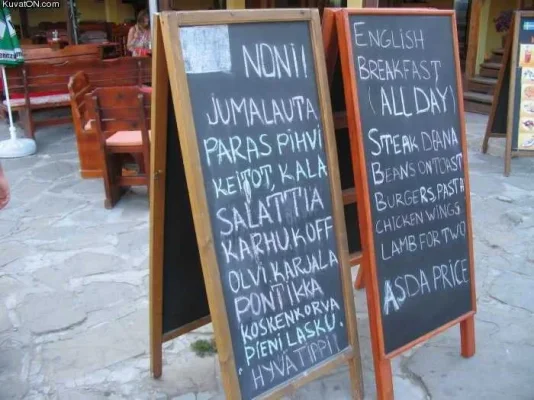 KuvatON.com
NONI!
JUMALAUTA
PARAS PIHVI
KEITOT, KALA
SALATTIA
KARHU, KOFF
OLVI, KARJALA
PONTIKKA
KOSKENKORVA
PIENI LASKU.
HYVÄ TIPPI!
ENGLISH
BREAKFAST
(ALL DAY)
STEAK DIANA
BEANS ON TOAST
BURGERS, PASTA
CHICKEN WINGS
LAMB FOR TWO
ASDA PRICE